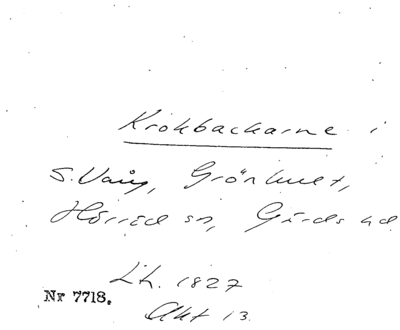 Krokbackarne i
S. Vång, Grönhult,
Hörröd sn, Gärds hd
Lh. 1827
Nr 7718.
Akt 13.